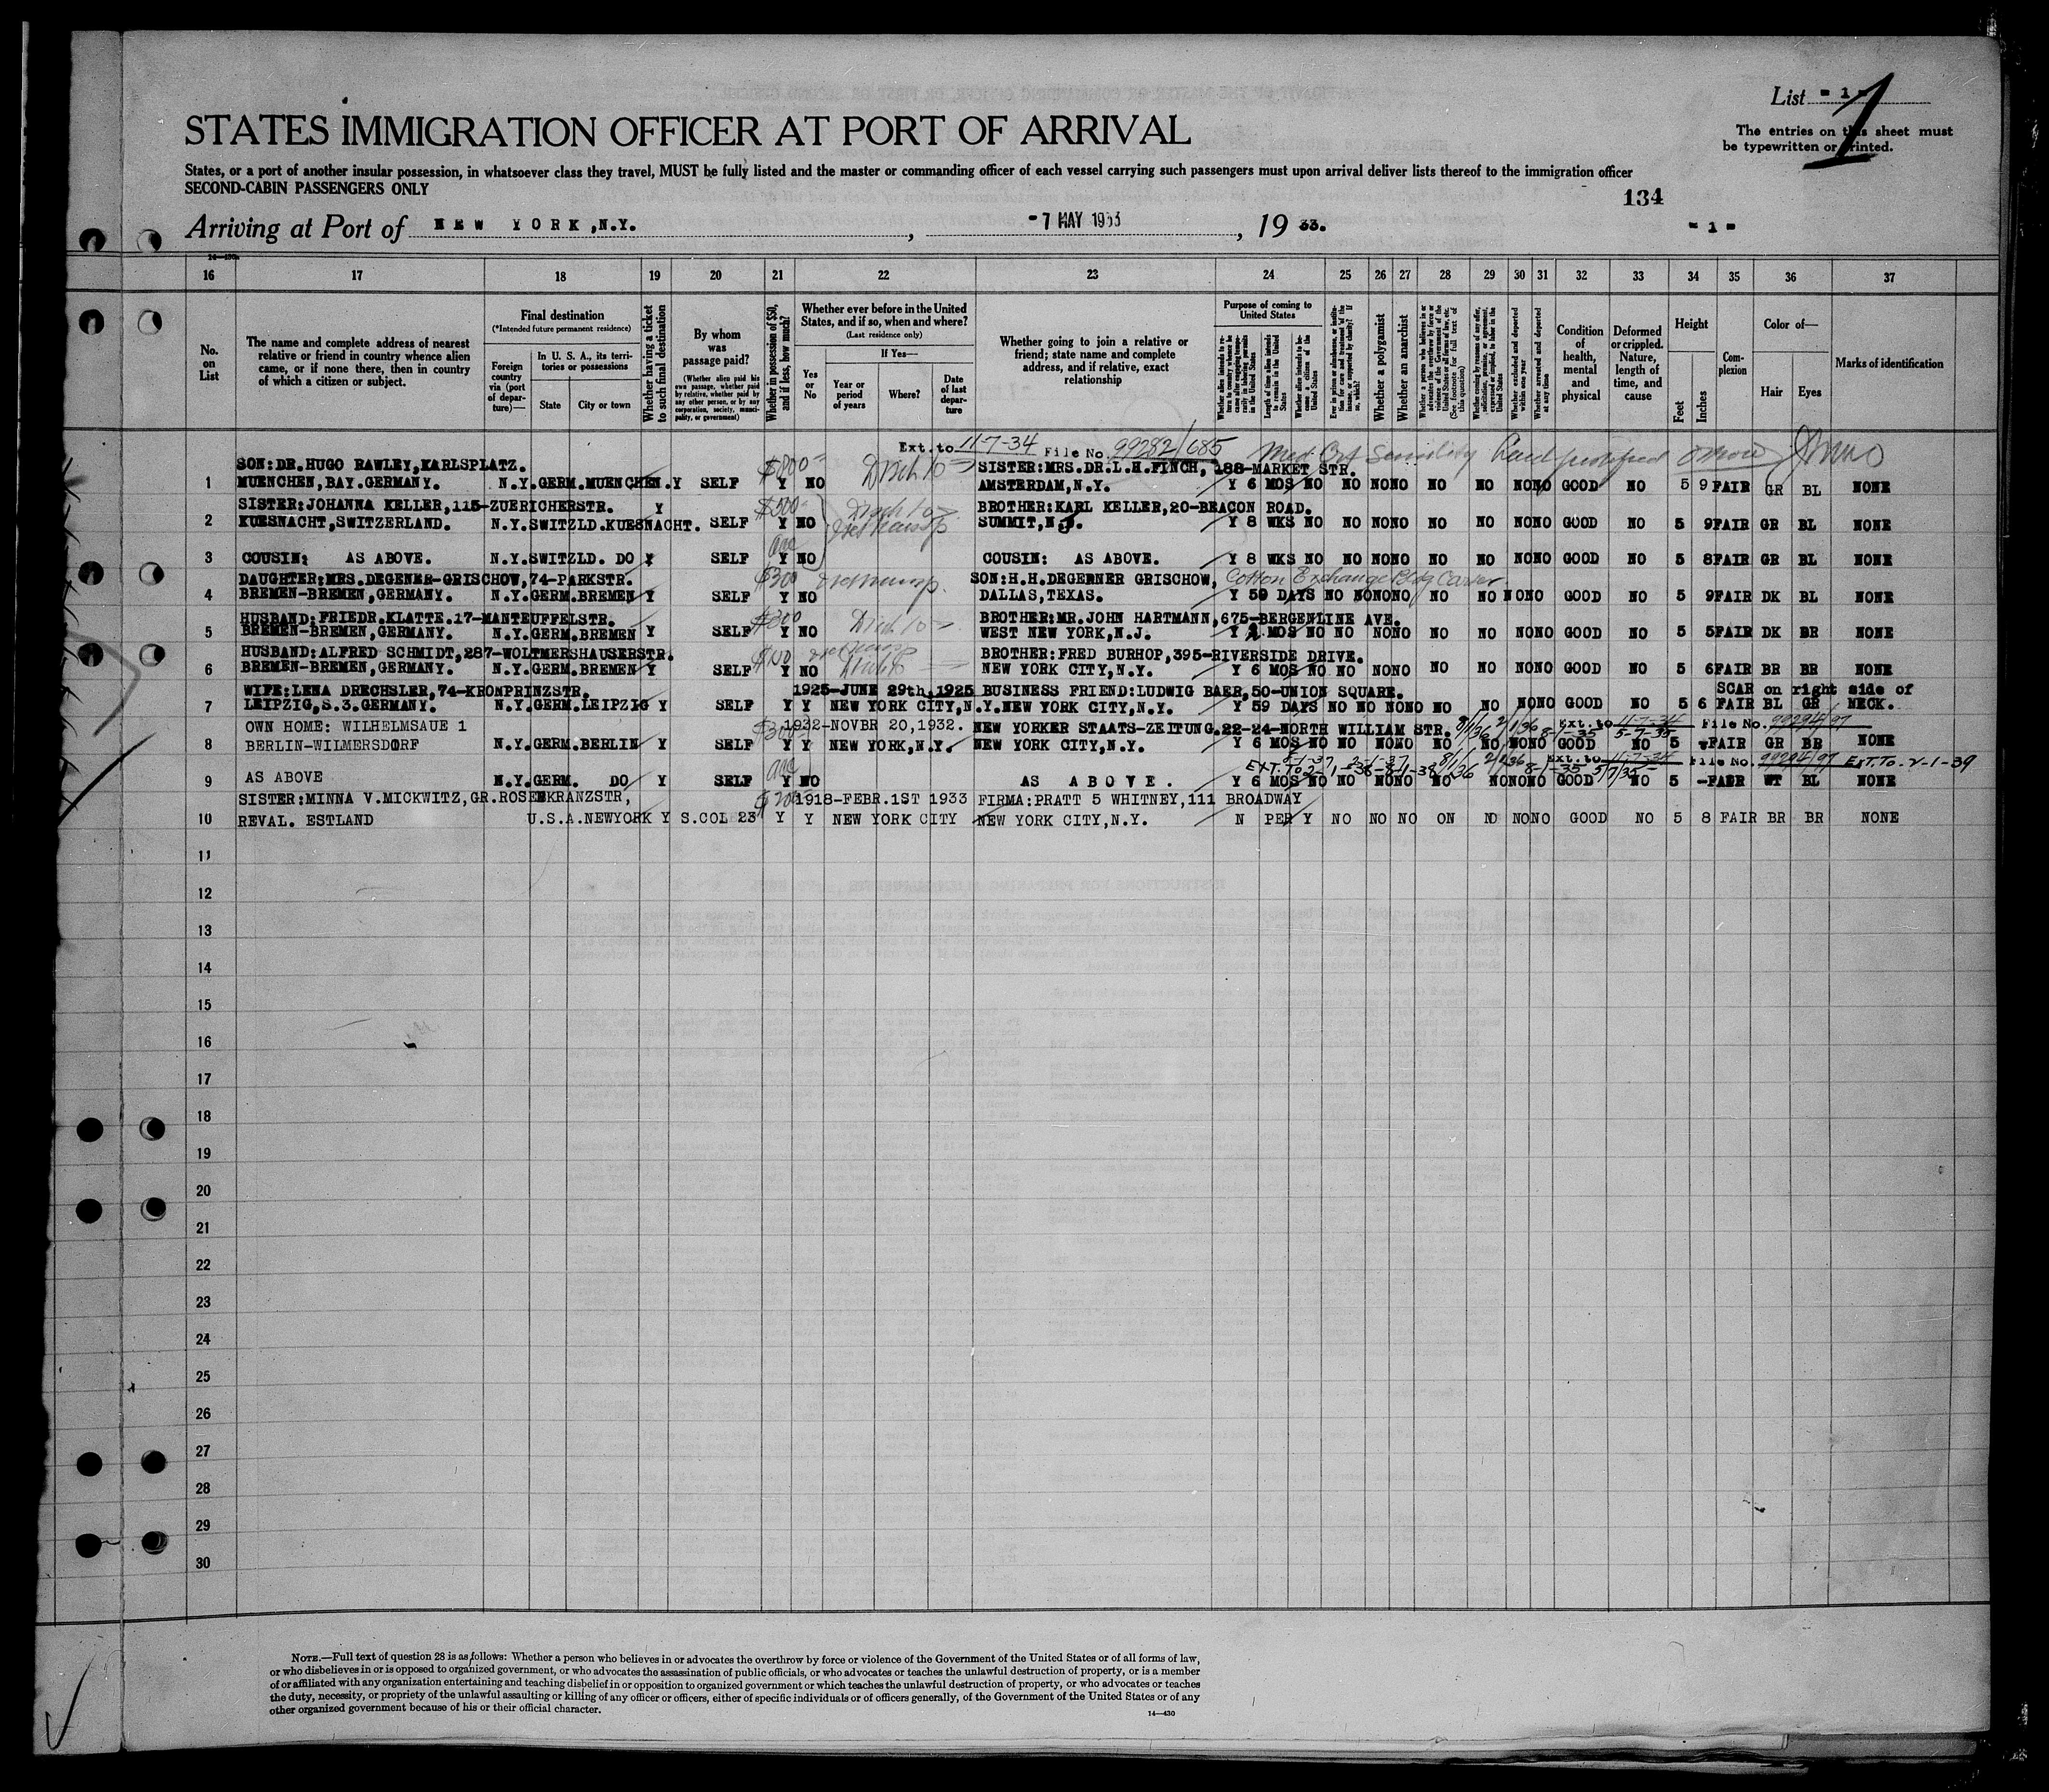 List - 1 -
1
The entries on this sheet must
be typewritten or printed.
STATES IMMIGRATION OFFICER AT PORT OF ARRIVAL
States, or a port of another insular possession, in whatsoever class they travel, MUST be fully listed and the master or commanding officer of each vessel carrying such passengers must upon arrival deliver lists thereof to the immigration officer
SECOND-CABIN PASSENGERS ONLY
134
Arriving at Port of NEW YORK, N.Y. , -7 MAY 1933 , 19 33.
- 1 -
14—430
16 17 18 19 20 21 22 23 24 25 26 27 28 29 30 31 32 33 34 35 36 37
No. on List
The name and complete address of nearest relative or friend in country whence alien came, or if none there, then in country of which a citizen or subject.
Final destination
(*Intended future permanent residence)
Foreign country via (port of departure)—
In U. S. A., its territories or possessions
State
City or town
Whether having a ticket to such final destination
By whom was passage paid?
(Whether alien paid his own passage, whether paid by relative, whether paid by any other person, or by any corporation, society, municipality, or government)
Whether in possession of $50, and if less, how much?
Whether ever before in the United States, and if so, when and where?
(Last residence only)
Yes or No
If Yes—
Year or period of years
Where?
Date of last departure
Whether going to join a relative or friend; state name and complete address, and if relative, exact relationship
Purpose of coming to United States
Length of time alien intends to remain in the United States
Whether alien intends to become a citizen of the United States
Whether a polygamist
Whether an anarchist
Whether excluded and deported within one year
Whether arrested and deported at any time
Condition of health, mental and physical
Deformed or crippled. Nature, length of time, and cause
Height
Feet
Inches
Complexion
Color of—
Hair
Eyes
Marks of identification
Ext. to 11-7-34 File No. 99282/685
SON:DR.HUGO RAWLEY,KARLSPLATZ. $800 SISTER:MRS.DR.L.H.FINCH, 188-MARKET STR.
1 MUENCHEN,BAY.GERMANY. N.Y.GERM.MUENCHEN.Y SELF Y NO AMSTERDAM,N.Y. Y 6 MOS NO NO NONO NO NO NONO GOOD NO 5 9 FAIR GR BL NONE
SISTER:JOHANNA KELLER,115-ZUERICHERSTR. Y $500 BROTHER:KARL KELLER,20-BEACON ROAD.
2 KUESNACHT,SWITZERLAND. N.Y.SWITZLD.KUESNACHT. SELF Y NO SUMMIT,N.J. Y 8 WKS NO NO NONO NO NO NONO GOOD NO 5 9FAIR GR BL NONE
3 COUSIN: AS ABOVE. N.Y.SWITZLD. DO Y SELF Y NO COUSIN: AS ABOVE. Y 8 WKS NO NO NONO NO NO NONO GOOD NO 5 8FAIR GR BL NONE
DAUGHTER:MRS.DEGENER-GRISCHOW,74-PARKSTR. $300 SON:H.H.DEGERNER GRISCHOW, Cotton Exchange Bldg
4 BREMEN-BREMEN,GERMANY. N.Y.GERM.BREMEN Y SELF Y NO DALLAS,TEXAS. Y 59 DAYS NO NONONO NO NO NONO GOOD NO 5 9FAIR DK BL NONE
HUSBAND:FRIEDR.KLATTE.17-MANTEUFFELSTR. $300 BROTHER:MR.JOHN HARTMANN,675-BERGENLINE AVE.
5 BREMEN-BREMEN,GERMANY. N.Y.GERM.BREMEN Y SELF Y NO WEST NEW YORK,N.J. Y MOS NO NO NONO NO NO NONO GOOD NO 5 5FAIR DK BR NONE
HUSBAND:ALFRED SCHMIDT,287-WOLTMERSHAUSERSTR. $100 BROTHER:FRED BURHOP,395-RIVERSIDE DRIVE.
6 BREMEN-BREMEN,GERMANY. N.Y.GERM.BREMEN Y SELF Y NO NEW YORK CITY,N.Y. Y 6 MOS NO NO NONO NO NO NONO GOOD NO 5 6FAIR BR BR NONE
WIFE:LENA DRECHSLER,74-KRONPRINZSTR. 1925-JUNE 29th,1925 BUSINESS FRIEND:LUDWIG BAER,50-UNION SQUARE. SCAR on right side of
7 LEIPZIG,S.3.GERMANY. N.Y.GERM.LEIPZIG Y SELF Y Y NEW YORK CITY,N.Y.NEW YORK CITY,N.Y. Y 59 DAYS NO NO NONO NO NO NONO GOOD NO 5 6 FAIR BL GR NECK.
OWN HOME: WILHELMSAUE 1 $300 1932-NOVBR 20,1932. NEW YORKER STAATS-ZEITUNG.22-24-NORTH WILLIAM STR. 8/1/36 2/1/36 8-1-35 Ext. to 11-7-34 5-7-35 File No. 99294/97
8 BERLIN-WILMERSDORF N.Y.GERM.BERLIN Y SELF Y Y NEW YORK,N.Y. NEW YORK CITY,N.Y. Y 6 MOS NO NO NONO NO NO NONO GOOD NO 5 FAIR GR BR NONE
8/1/36 2/1/36 8-1-35 Ext. to 11-7-34 5/7/35 File No. 99294/97 EXT. TO. 2-1-39
9 AS ABOVE N.Y.GERM. DO Y SELF Y NO AS ABOVE. Y 6 MOS NO NO NONO NO NONONO GOOD NO 5 -FAIR WT BL NONE
SISTER:MINNA V.MICKWITZ,GR.ROSENKRANZSTR, 1918-FEBR.1ST 1933 FIRMA:PRATT 5 WHITNEY,111 BROADWAY
10 REVAL. ESTLAND U.S.A.NEWYORK Y S.COL 23 Y Y NEW YORK CITY NEW YORK CITY,N.Y. N PER Y NO NO NO ON NO NONO GOOD NO 5 8 FAIR BR BR NONE
11
12
13
14
15
16
17
18
19
20
21
22
23
24
25
26
27
28
29
30
NOTE.—Full text of question 28 is as follows: Whether a person who believes in or advocates the overthrow by force or violence of the Government of the United States or of all forms of law,
or who disbelieves in or is opposed to organized government, or who advocates the assassination of public officials, or who advocates or teaches the unlawful destruction of property, or is a member
of or affiliated with any organization entertaining and teaching disbelief in or opposition to organized government or which teaches the unlawful destruction of property, or who advocates or teaches
the duty, necessity, or propriety of the unlawful assaulting or killing of any officer or officers, either of specific individuals or of officers generally, of the Government of the United States or of any
other organized government because of his or their official character.
14—430